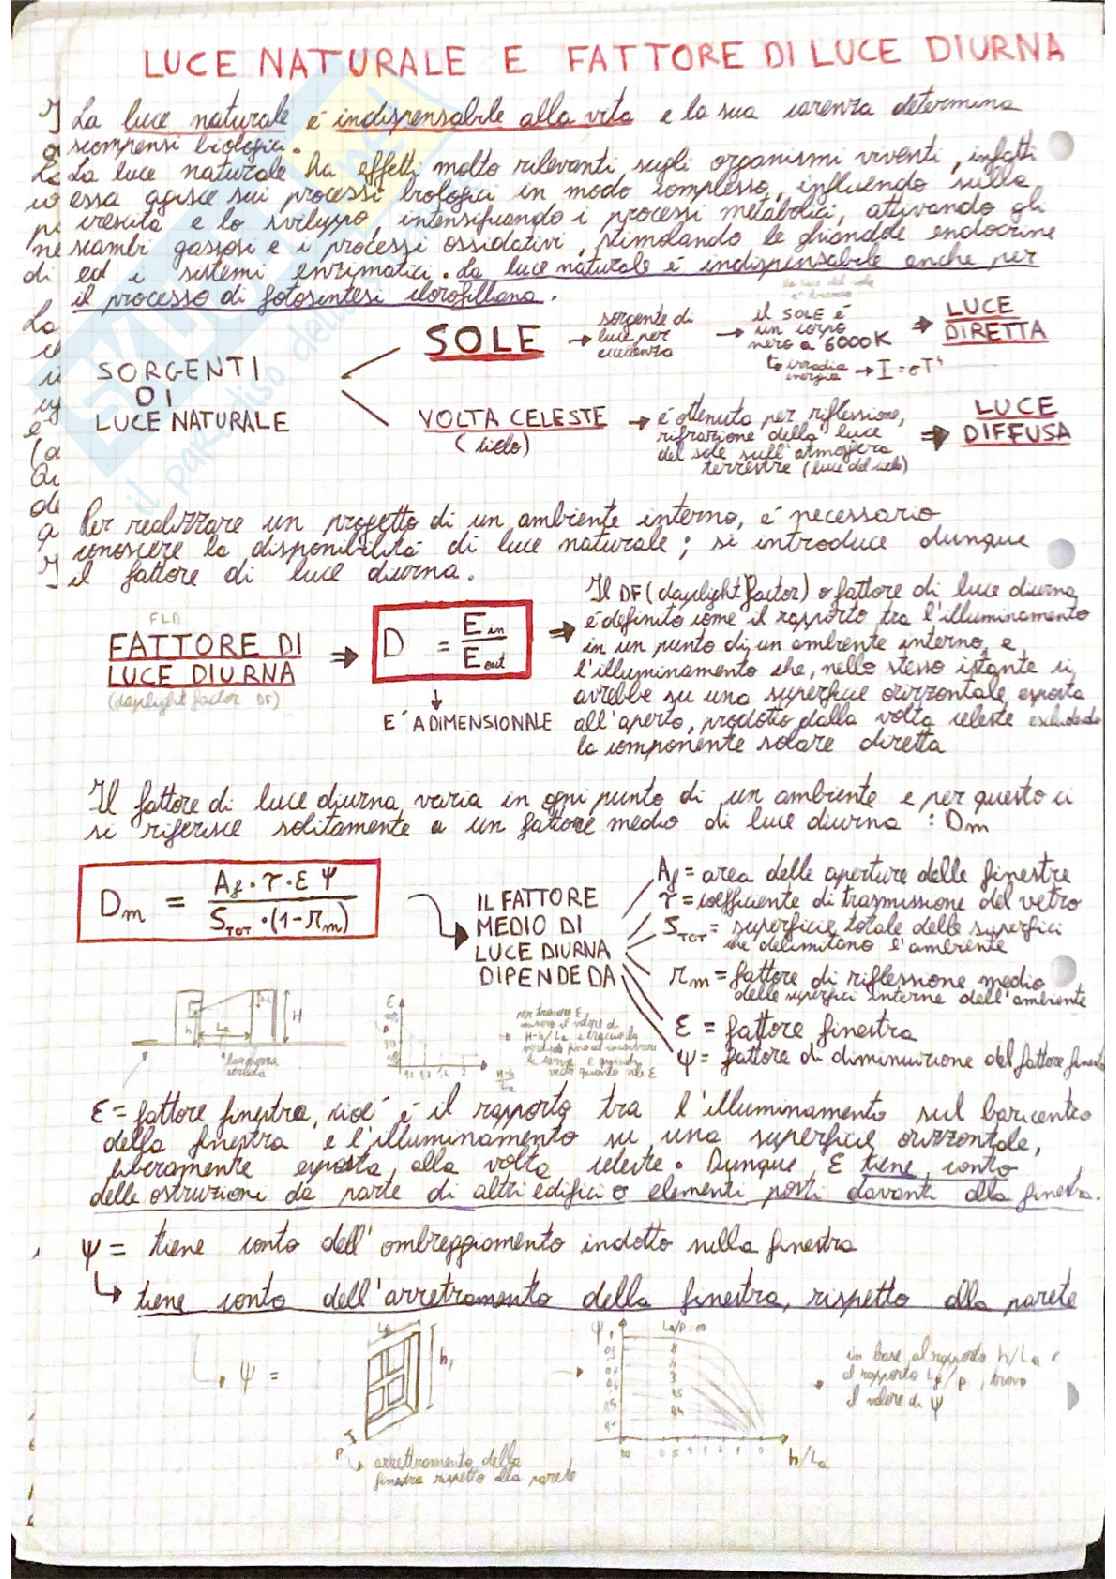 LUCE NATURALE E FATTORE DI LUCE DIURNA
La luce naturale è indispensabile alla vita e la sua carenza determina
scompensi biologici.
La luce naturale ha effetti molto rilevanti sugli organismi viventi, infatti
essa agisce sui processi biologici in modo complesso, influendo sulla
crescita e lo sviluppo, intensificando i processi metabolici, attivando gli
scambi gassosi e i processi ossidativi, stimolando le ghiandole endocrine
ed i sistemi enzimatici. La luce naturale è indispensabile anche per
il processo di fotosintesi clorofilliana.
SORGENTI
DI
LUCE NATURALE
SOLE
sorgente di
luce per
eccellenza
il SOLE è
un corpo
nero a 6000K
irradia
energia → I = σT⁴
LUCE
DIRETTA
VOLTA CELESTE
(cielo)
è ottenuta per riflessione,
rifrazione della luce
del sole sull'atmosfera
terrestre (luce del cielo)
LUCE
DIFFUSA
Per realizzare un progetto di un ambiente interno, è necessario
conoscere la disponibilità di luce naturale; si introduce dunque
il fattore di luce diurna.
FLD
FATTORE DI
LUCE DIURNA
(daylight factor DF)
D = Ein / Eout
E' ADIMENSIONALE
Il DF (daylight factor) o fattore di luce diurna
è definito come il rapporto tra l'illuminamento
in un punto di un ambiente interno, e
l'illuminamento che, nello stesso istante si
avrebbe su una superficie orizzontale esposta
all'aperto, prodotto dalla volta celeste escludendo
la componente solare diretta
Il fattore di luce diurna varia in ogni punto di un ambiente e per questo ci
si riferisce solitamente a un fattore medio di luce diurna : Dm
Dm = Af · τ · ε ψ / STOT · (1 - rm)
IL FATTORE
MEDIO DI
LUCE DIURNA
DIPENDE DA
Af = area delle aperture delle finestre
τ = coefficiente di trasmissione del vetro
STOT = superficie totale delle superfici
che delimitano l'ambiente
rm = fattore di riflessione medio
delle superfici interne dell'ambiente
ε = fattore finestra
ψ = fattore di diminuzione del fattore finestra
h
La
H
larghezza
strada
ε
H-h
La
per trovare ε,
H-h/La e traccio la
ε = fattore finestra, cioè è il rapporto tra l'illuminamento sul baricentro
della finestra e l'illuminamento su una superficie orizzontale,
liberamente esposta, alla volta celeste. Dunque, ε tiene conto
delle ostruzioni da parte di altri edifici o elementi posti davanti alla finestra.
ψ = tiene conto dell'ombreggiamento indotto sulla finestra
tiene conto dell'arretramento della finestra, rispetto alla parete
ψ =
hf
P
arretramento della
finestra rispetto alla parete
ψ
h/La
in base al rapporto h/La e
il rapporto Lf/p, trovo
il valore di ψ